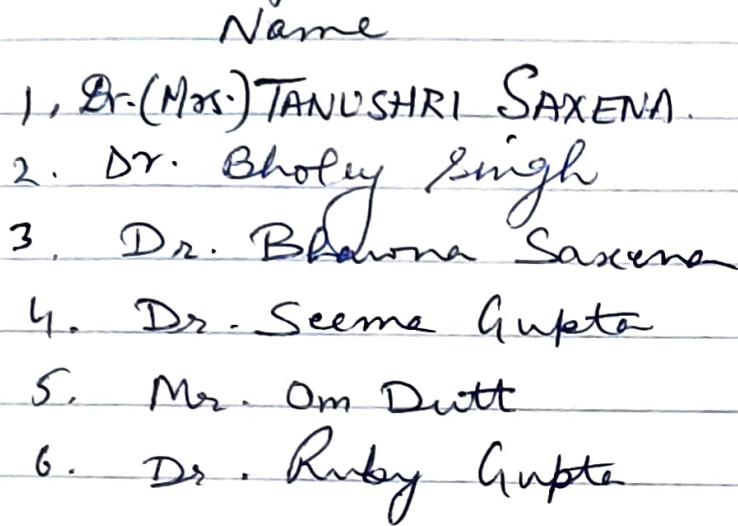 Name
1, Dr. (Mrs.) TANUSHRI SAXENA.
2. Dr. Bholey Singh
3. Dr. Bhawna Saxena
4. Dr. Seema Gupta
5. Mr. Om Dutt
6. Dr. Ruby Gupta